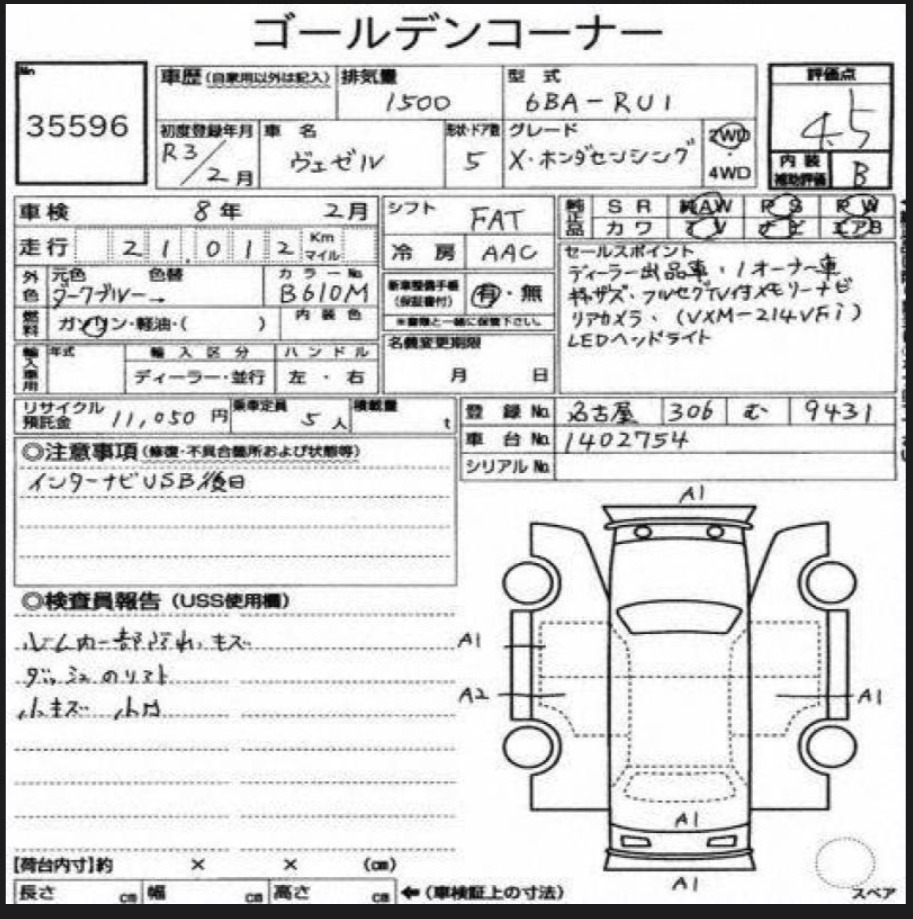 ゴールデンコーナー
No
35596
車歴(自家用以外は記入)
排気量
1500
型式
6BA-RU1
評価点
4.5
初度登録年月
R3/2月
車名
ヴェゼル
形状・ドア数
5
グレード
X・ホンダセンシング
2WD
・
4WD
内装
補助評価
B
車検 8年 2月
シフト
FAT
純正品
SR 純AW PS PW
カワ TV ナビ エアB
走行 21,012 Km マイル
冷房
AAC
セールスポイント
ディーラー出品車・1オーナー車
ギャザズ・フルセグTV付メモリーナビ
リアカメラ、(VXM-214VFi)
LEDヘッドライト
外色
元色 色替
ダークブルー→
カラーNo.
B610M
新車整備手帳
(保証書付)
有・無
※書類と一緒に保管下さい。
燃料
ガソリン・軽油・( )
内装色
名義変更期限
月 日
輸入車用
年式
輸入区分
ディーラー・並行
ハンドル
左・右
リサイクル
預託金 11,050円
乗車定員
5人
積載量
t
登録No. 名古屋 306 む 9431
車台No. 1402754
シリアルNo.
◎注意事項(修復・不具合箇所および状態等)
インターナビUSB後日
◎検査員報告(USS使用欄)
キズ
小キズ 小凹
A1
A1
A2
A1
A1
A1
[荷台内寸]約 × × (cm)
長さ cm 幅 cm 高さ cm ←(車検証上の寸法)
スペア